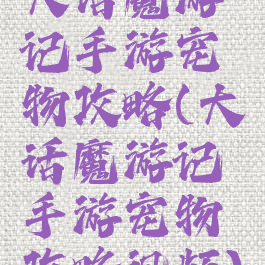 大话魔游
记手游宠
物攻略(大
话魔游记
手游宠物
攻略视频)